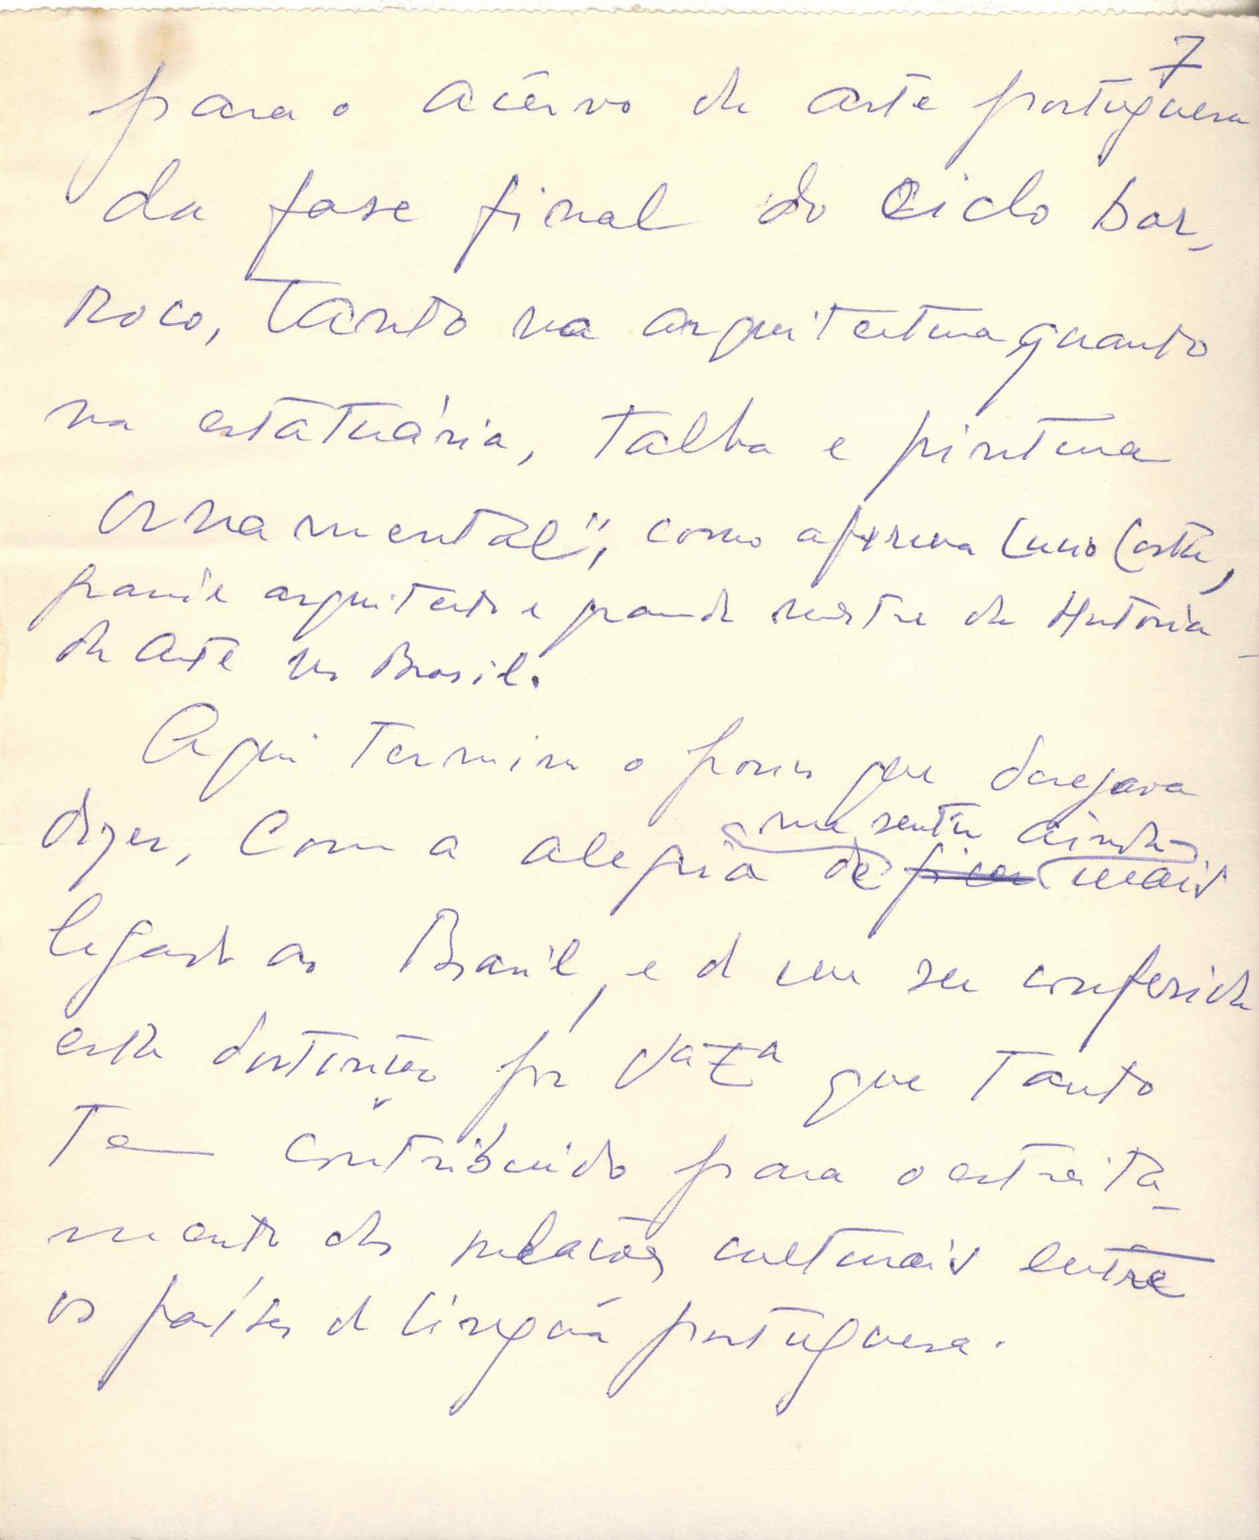 7
para o acêrvo da arte portuguesa
da fase final do ciclo bar-
roco, tanto na arquitetura quanto
na estatuária, talha e pintura
ornamental", como afirma Lucio Costa,
grande arquiteto e grande mestre da Historia
da Arte no Brasil.
Aqui termino o pouco que desejava
me sentir ainda
dizer, com a alegria de ficar mais
legado ao Brasil, e d me ser conferida
esta distinção por que tanto
Tem contribuido para o estreita-
mento das relações culturais entre
os países d lingua portuguesa.